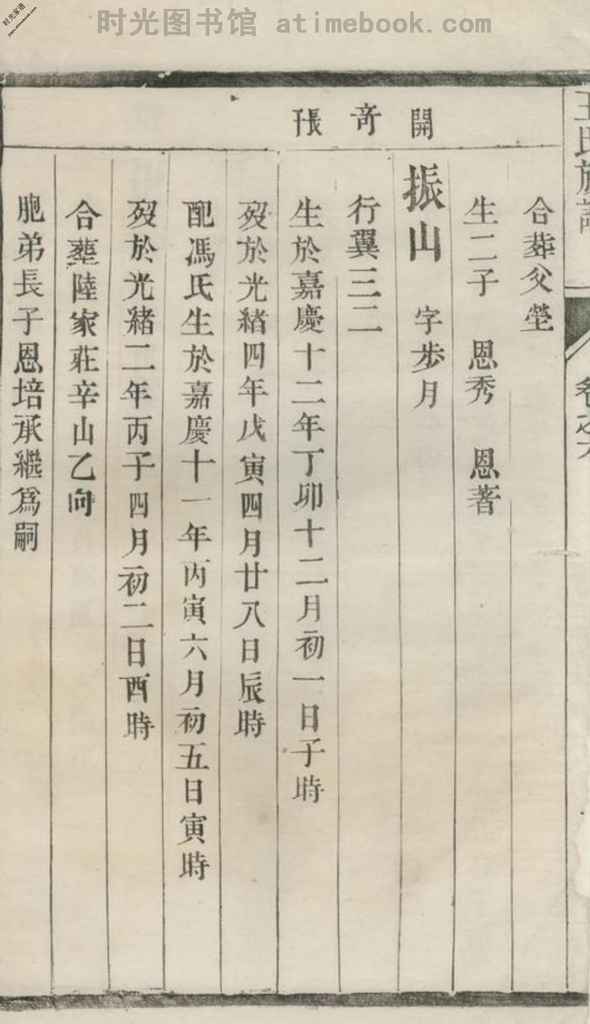 时光图书馆 - atimebook.com
时光家谱
王氏族譜
開 奇 張
合葬父塋
生二子 恩秀 恩著
振山 字步月
行翼三二
生於嘉慶十二年丁卯十二月初一日子時
歿於光緒四年戊寅四月廿八日辰時
配馮氏生於嘉慶十一年丙寅六月初五日寅時
歿於光緒二年丙子四月初二日酉時
合葬陸家莊辛山乙向
胞弟長子恩培承繼爲嗣